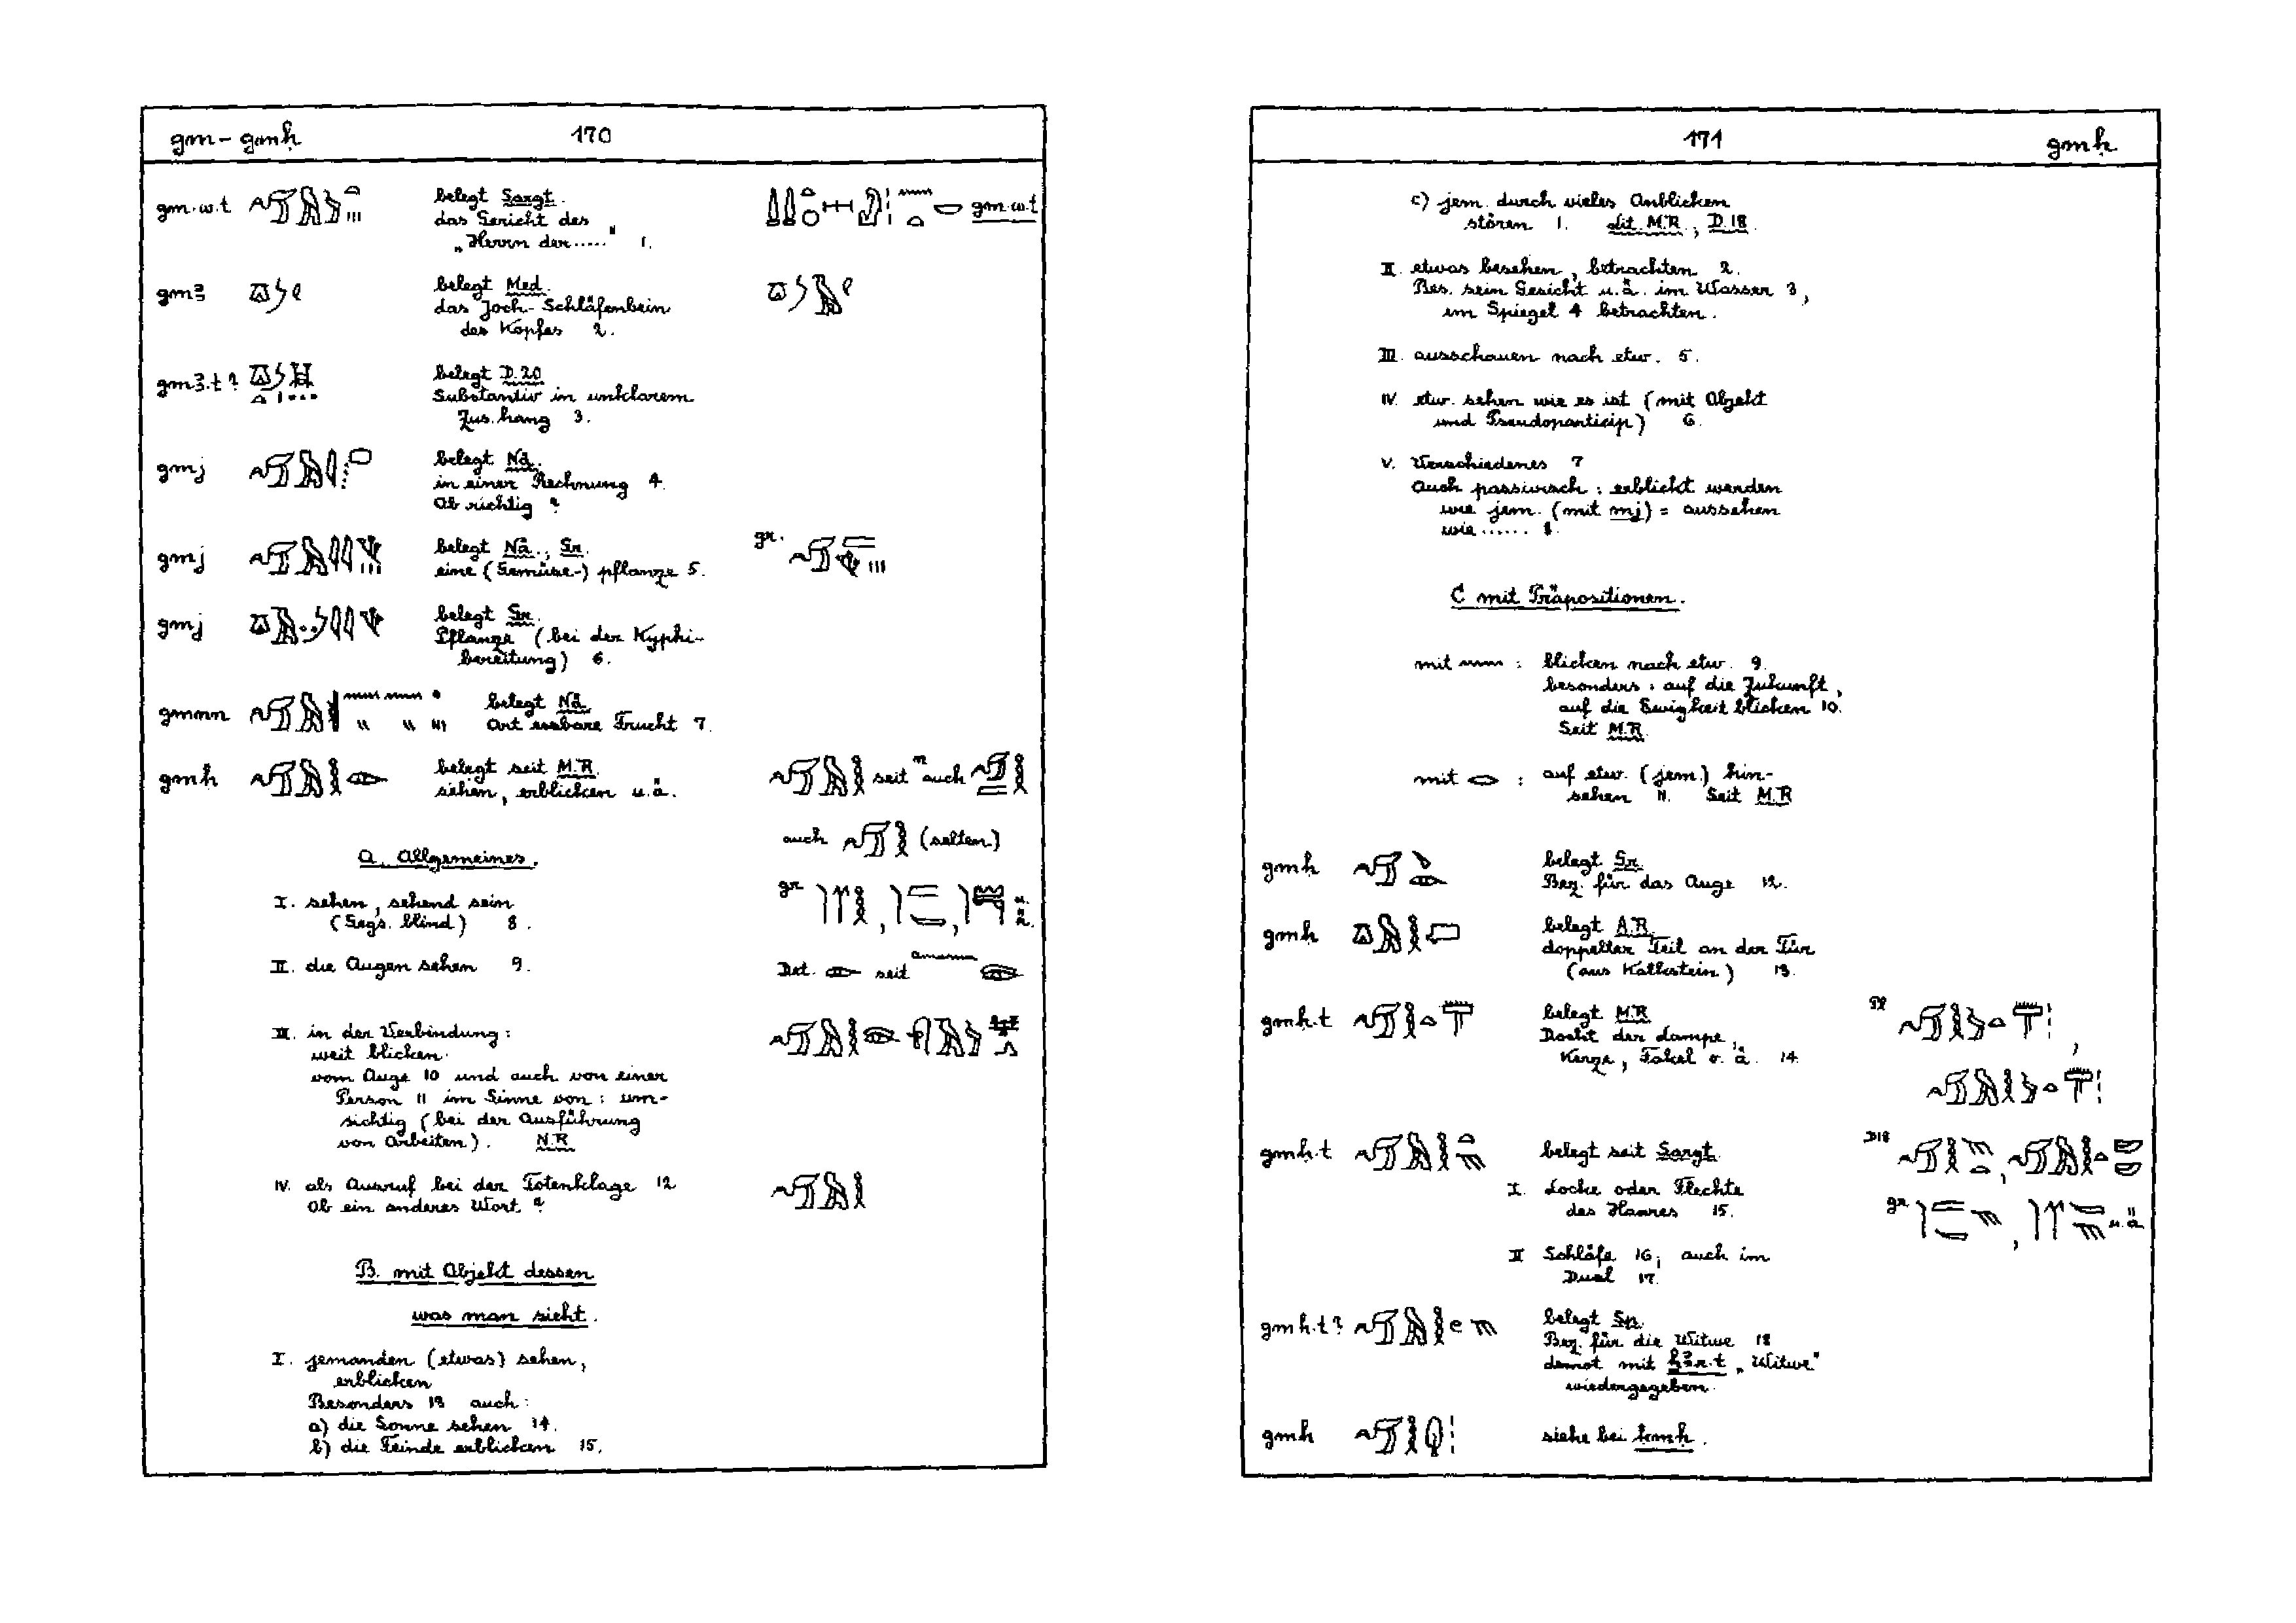 gm - gmḥ 170
gm.w.t belegt Sargt.
das Gericht des
„Herrn der....." 1. gm.w.t
gmꜣ belegt Med.
das Joch-Schläfenbein
des Kopfes 2.
gmꜣ.t? belegt D.20
Substantiv in unklarem
Zus.hang 3.
gmj belegt Nä.
in einer Rechnung 4.
Ob richtig?
gmj belegt Nä., Gr. gr.
eine (Gemüse-) pflanze 5.
gmj belegt Gr.
Pflanze (bei der Kyphi-
bereitung) 6.
gmnn belegt Nä.
Art essbare Frucht 7.
gmḥ belegt seit M.R. seit auch
sehen, erblicken u.ä.
auch (selten)
A. Allgemeines.
I. sehen, sehend sein gr u.ä.
(Gegs. blind) 8.
II. die Augen sehen 9. Det. seit Amarna
III. in der Verbindung:
weit blicken.
vom Auge 10 und auch von einer
Person 11 im Sinne von: um-
sichtig (bei der Ausführung
von Arbeiten). N.R.
IV. als Ausruf bei der Totenklage 12
Ob ein anderes Wort?
B. mit Objekt dessen
was man sieht.
I. jemanden (etwas) sehen,
erblicken
Besonders 13 auch:
a) die Sonne sehen 14.
b) die Feinde erblicken 15.
171 gmḥ
c) jem. durch vieles Anblicken
stören 1. Lit. M.R., D.18.
II. etwas besehen, betrachten 2.
Bes. sein Gesicht u.ä. im Wasser 3,
im Spiegel 4 betrachten.
III. ausschauen nach etw. 5.
IV. etw. sehen wie es ist (mit Objekt
und Pseudoparticip) 6.
V. Verschiedenes 7
Auch passivisch: erblickt werden
wie jem. (mit mj) = aussehen
wie...... 8.
C mit Präpositionen.
mit : blicken nach etw. 9.
besonders: auf die Zukunft,
auf die Ewigkeit blicken 10.
Seit M.R.
mit : auf etw. (jem.) hin-
sehen 11. Seit M.R
gmḥ belegt Gr.
Bez. für das Auge 12.
gmḥ belegt A.R.
doppelter Teil an der Tür
(aus Kalkstein) 13.
gmḥ.t belegt M.R Pl
Docht der Lampe,
Kerze, Fackel o. ä. 14.
gmḥ.t belegt seit Sargt. D18
I. Locke oder Flechte
des Haares 15. gr u.ä
II Schläfe 16; auch im
Dual 17.
gmḥ.t? belegt Sp.
Bez. für die Witwe 18
demot mit ẖꜣr.t „Witwe"
wiedergegeben.
gmḥ siehe bei kmḥ.